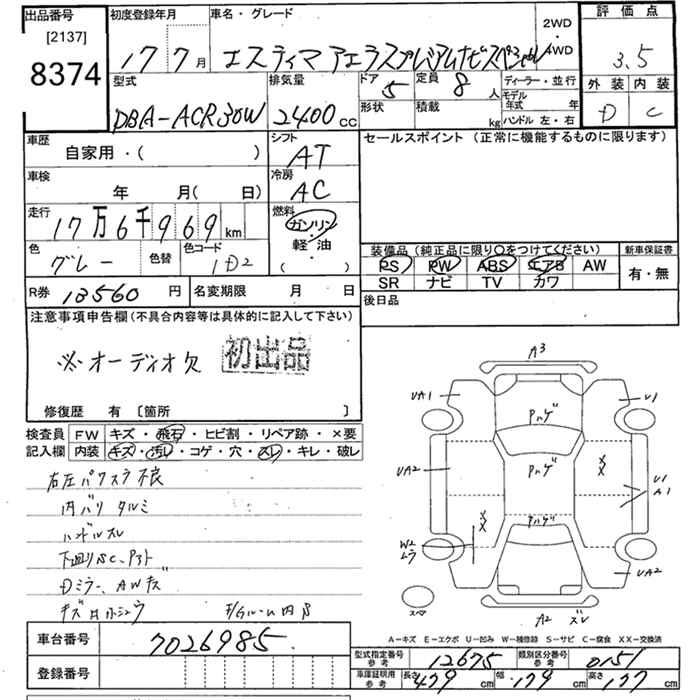 出品番号
[2137]
8374
初度登録年月
17 7月
車名・グレード
エスティマ アエラスプレミアムナビスペシャル
2WD
4WD
評価点
3.5
外装 内装
D C
型式
DBA-ACR30W
排気量
2400cc
ドア 5
形状
定員 8人
積載 kg
ディーラー・並行
モデル年式 年
ハンドル 左・右
車歴
自家用・( )
シフト
AT
セールスポイント(正常に機能するものに限ります)
車検
年 月( 日)
冷房
AC
走行
17万6千969km
燃料
ガソリン
軽・油
( )
色
グレー
色替
色コード
1D2
装備品(純正品に限り〇をつけてください) 新車保証書
PS PW ABS エアB AW 有・無
SR ナビ TV カワ
R券 13560円
名変期限 月 日
後日品
注意事項申告欄(不具合内容等は具体的に記入して下さい)
※オーディオ欠
初出品
修復歴 有 [箇所 ]
検査員 FW キズ・飛石・ヒビ割・リペア跡・×要
記入欄 内装 キズ・汚レ・コゲ・穴・スレ・キレ・破レ
右左パワスラ不良
内バリ タルミ
ハンドルスレ
下廻りSC、Pアト
Dミラー、AWキズ
車台番号
7026985
登録番号
A3
UA1
U1
Pハゲ
UA2
Pハゲ
XX
U1
A1
XX
Pハゲ
W2
ムラ
UA2
スペア
A2 ズレ
A-キズ E-エクボ U-凹み W-補修跡 S-サビ C-腐食 XX-交換済
型式指定番号 参考 12675
類別区分番号 参考 0151
車庫証明用 参考 長さ 479cm 幅 179cm 高さ 177cm